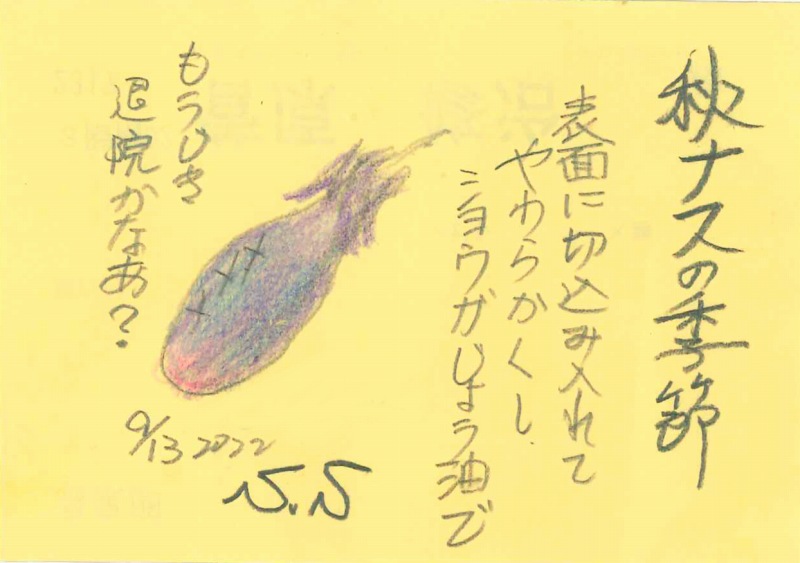 秋ナスの季節
表面に切込み入れて
やわらかくし、
ショウガじょう油で
もうじき
退院かなあ?
9/13 2022
S.S